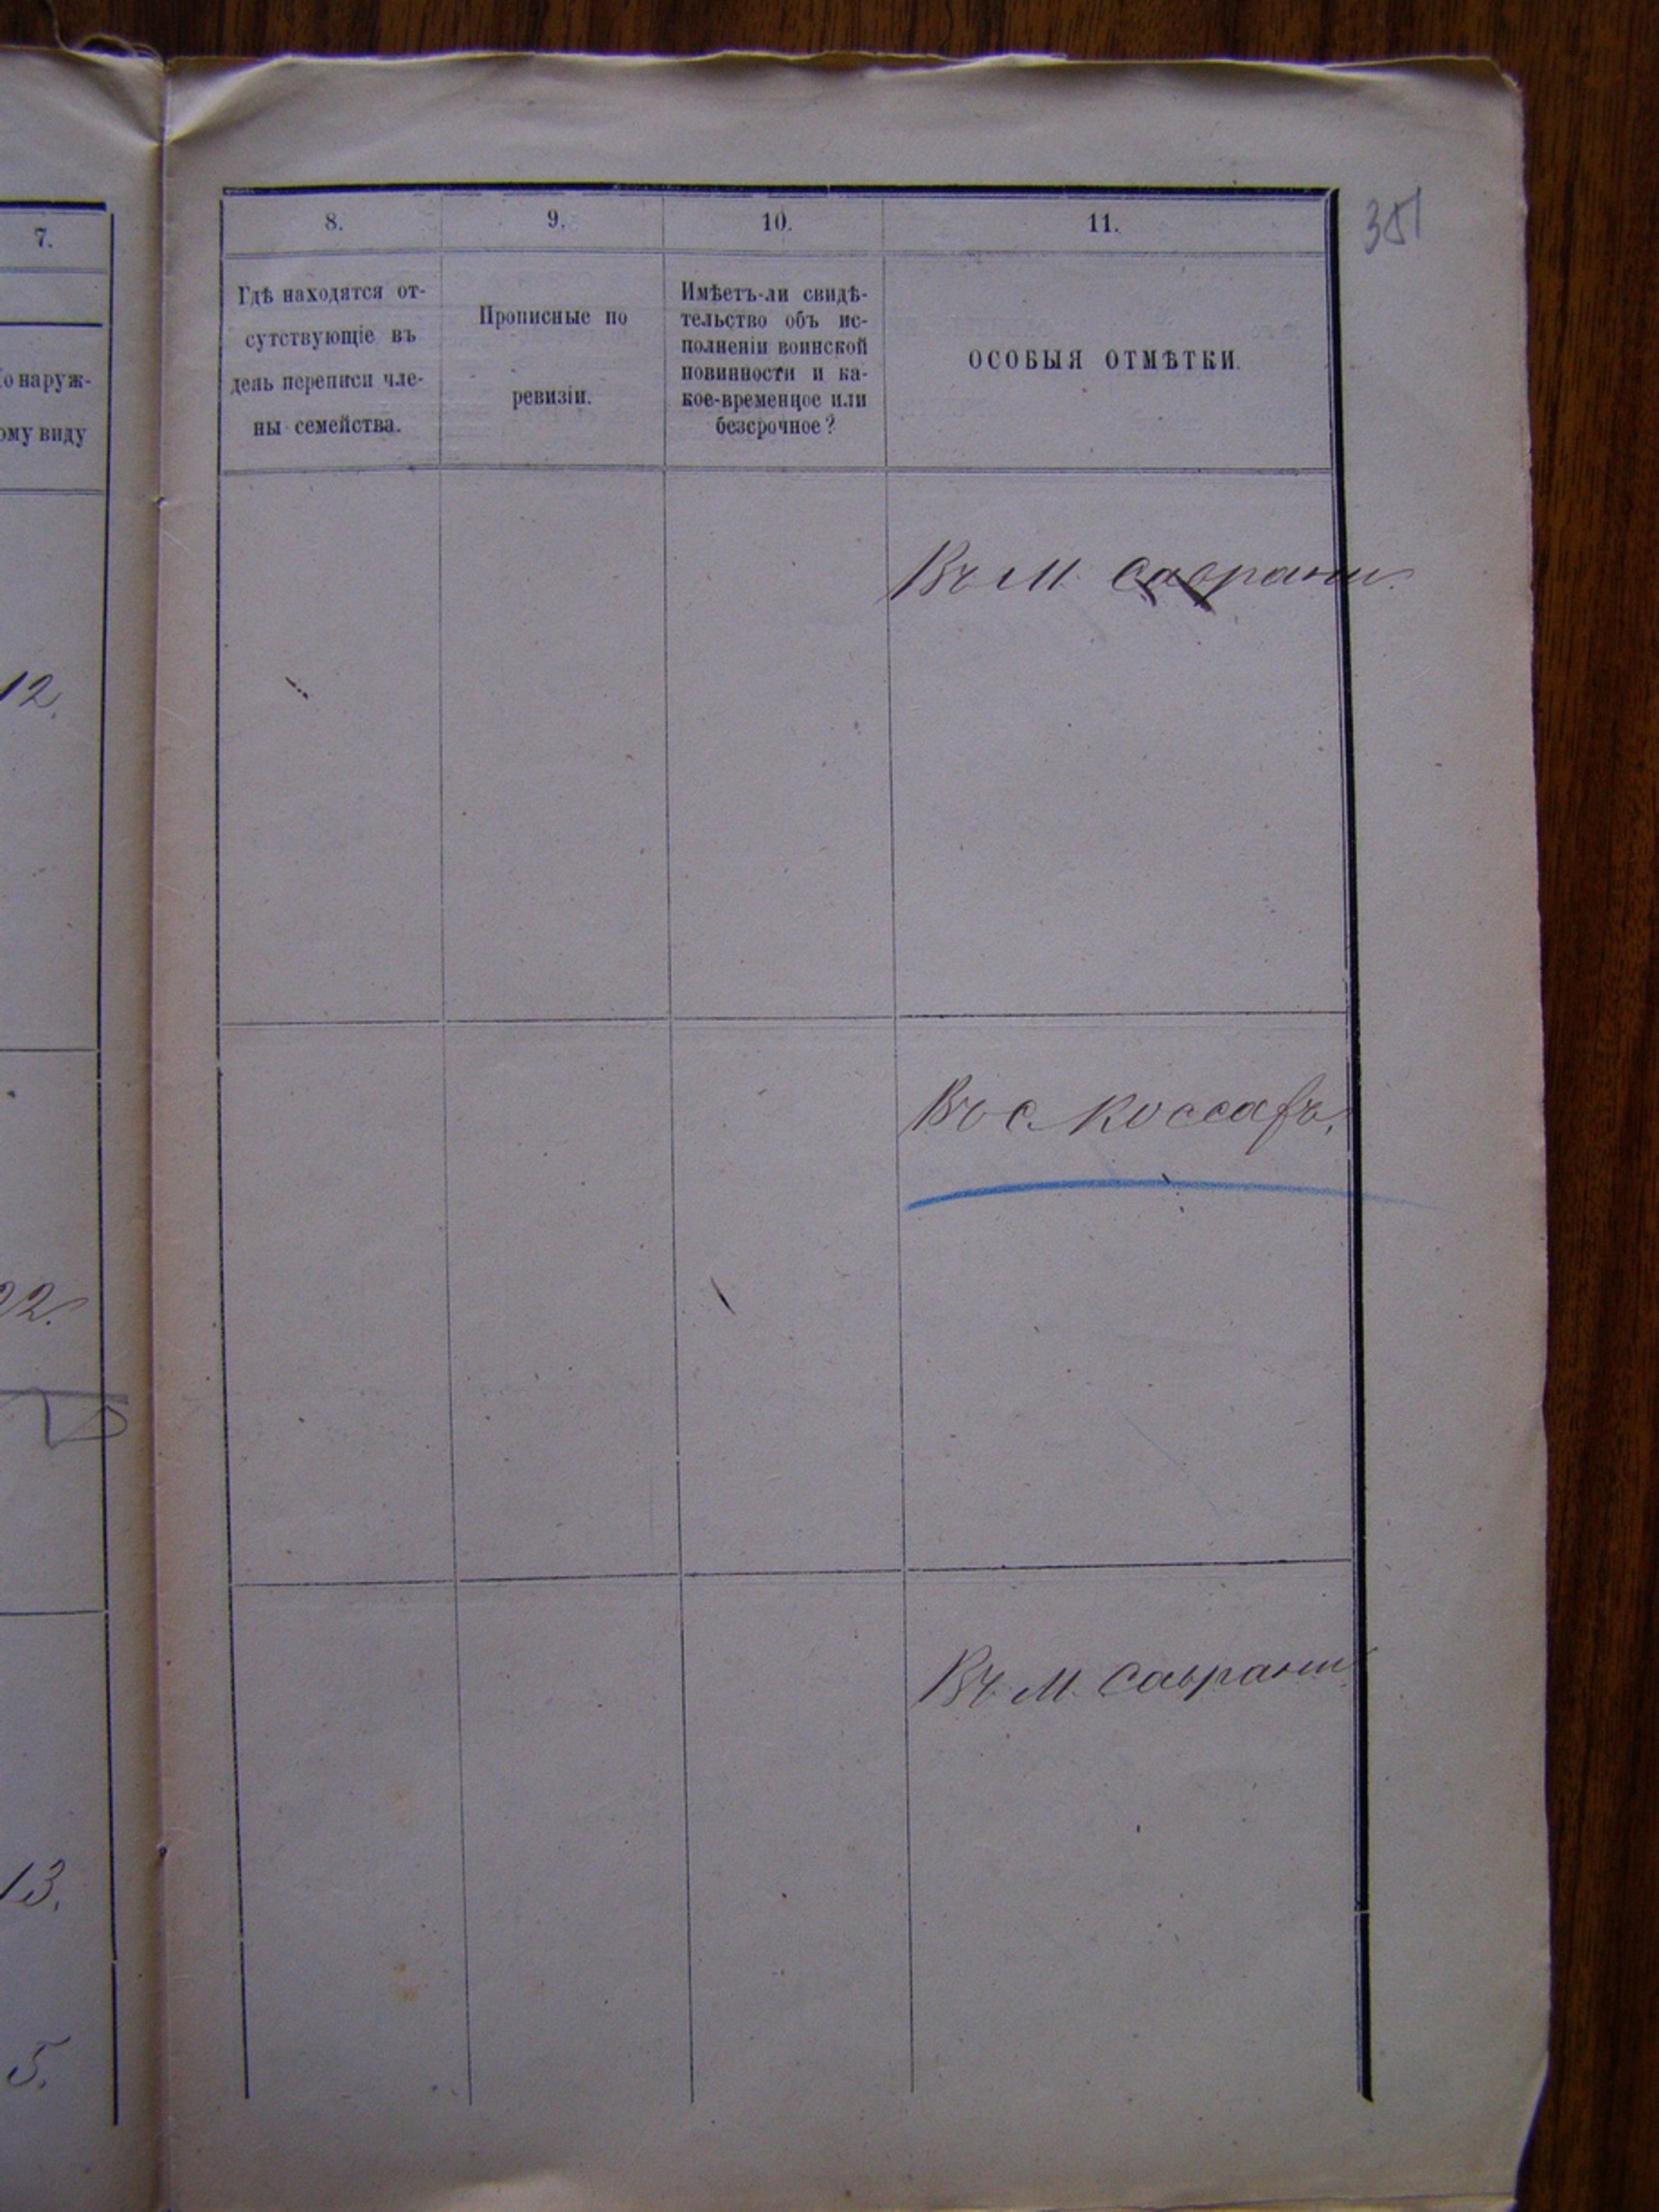 7.
о наруж-
ому виду
12.
22.
13.
5.
351
8.
9.
10.
11.
Гдѣ находятся от-
сутствующіе въ
день переписи чле-
ны семейства.
Прописные по
ревизіи.
Имѣетъ-ли свидѣ-
тельство объ ис-
полненіи воинской
повинности и ка-
кое-временное или
безсрочное?
ОСОБЫЯ ОТМѢТКИ.
Въ М. Саврани.
Въ с.
Въ М. Саврани.